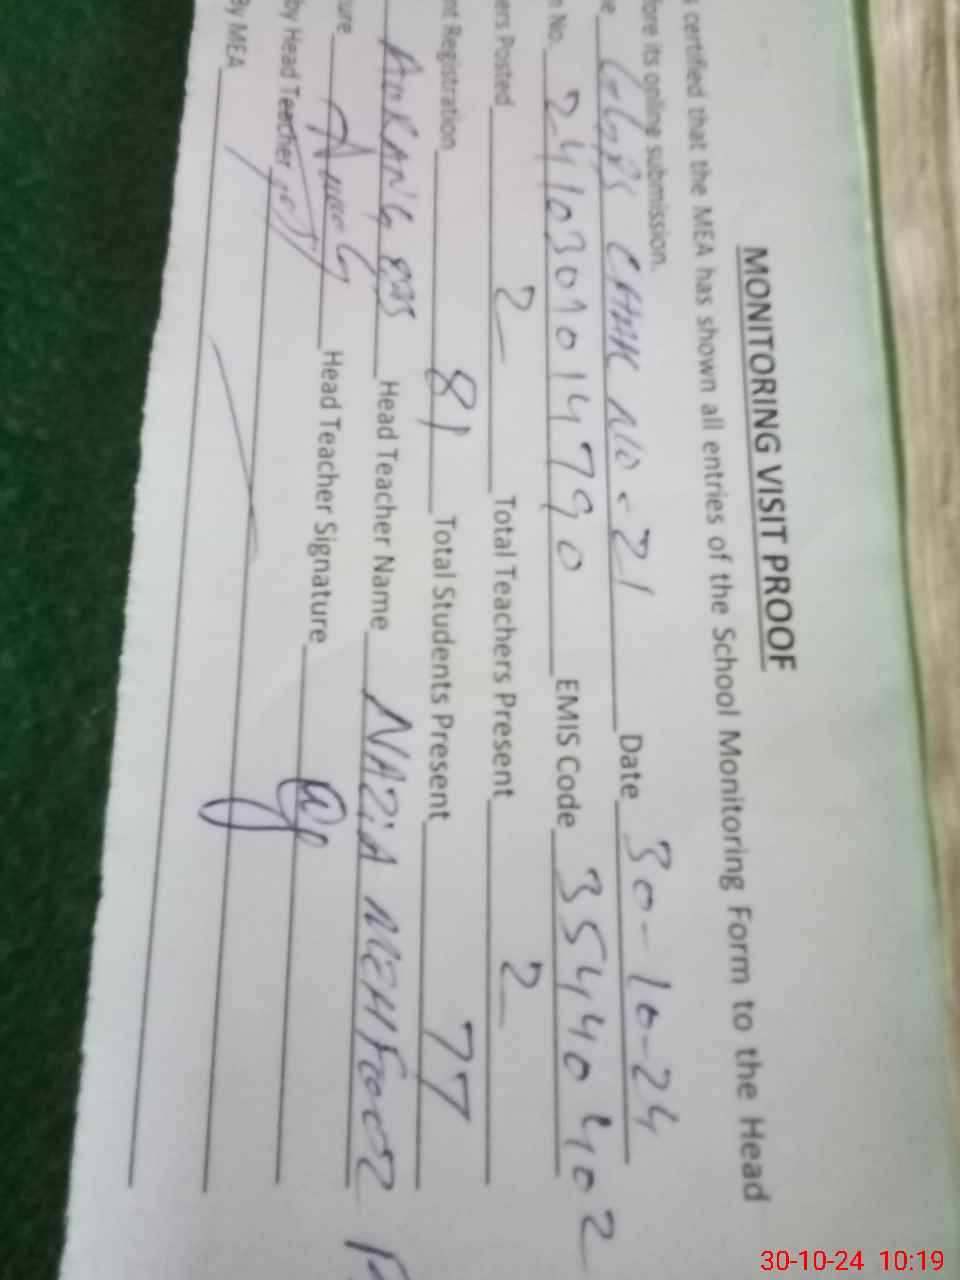 MONITORING VISIT PROOF
certified that the MEA has shown all entries of the School Monitoring Form to the Head
fore its online submission.
GGPS CHAK NO-21 Date 30-10-24
n No. 2410301014790 EMIS Code 35440402
ers Posted 2 Total Teachers Present 2
nt Registration 81 Total Students Present 77
Head Teacher Name NAZIA
ure Head Teacher Signature
by Head Teacher
By MEA
30-10-24 10:19